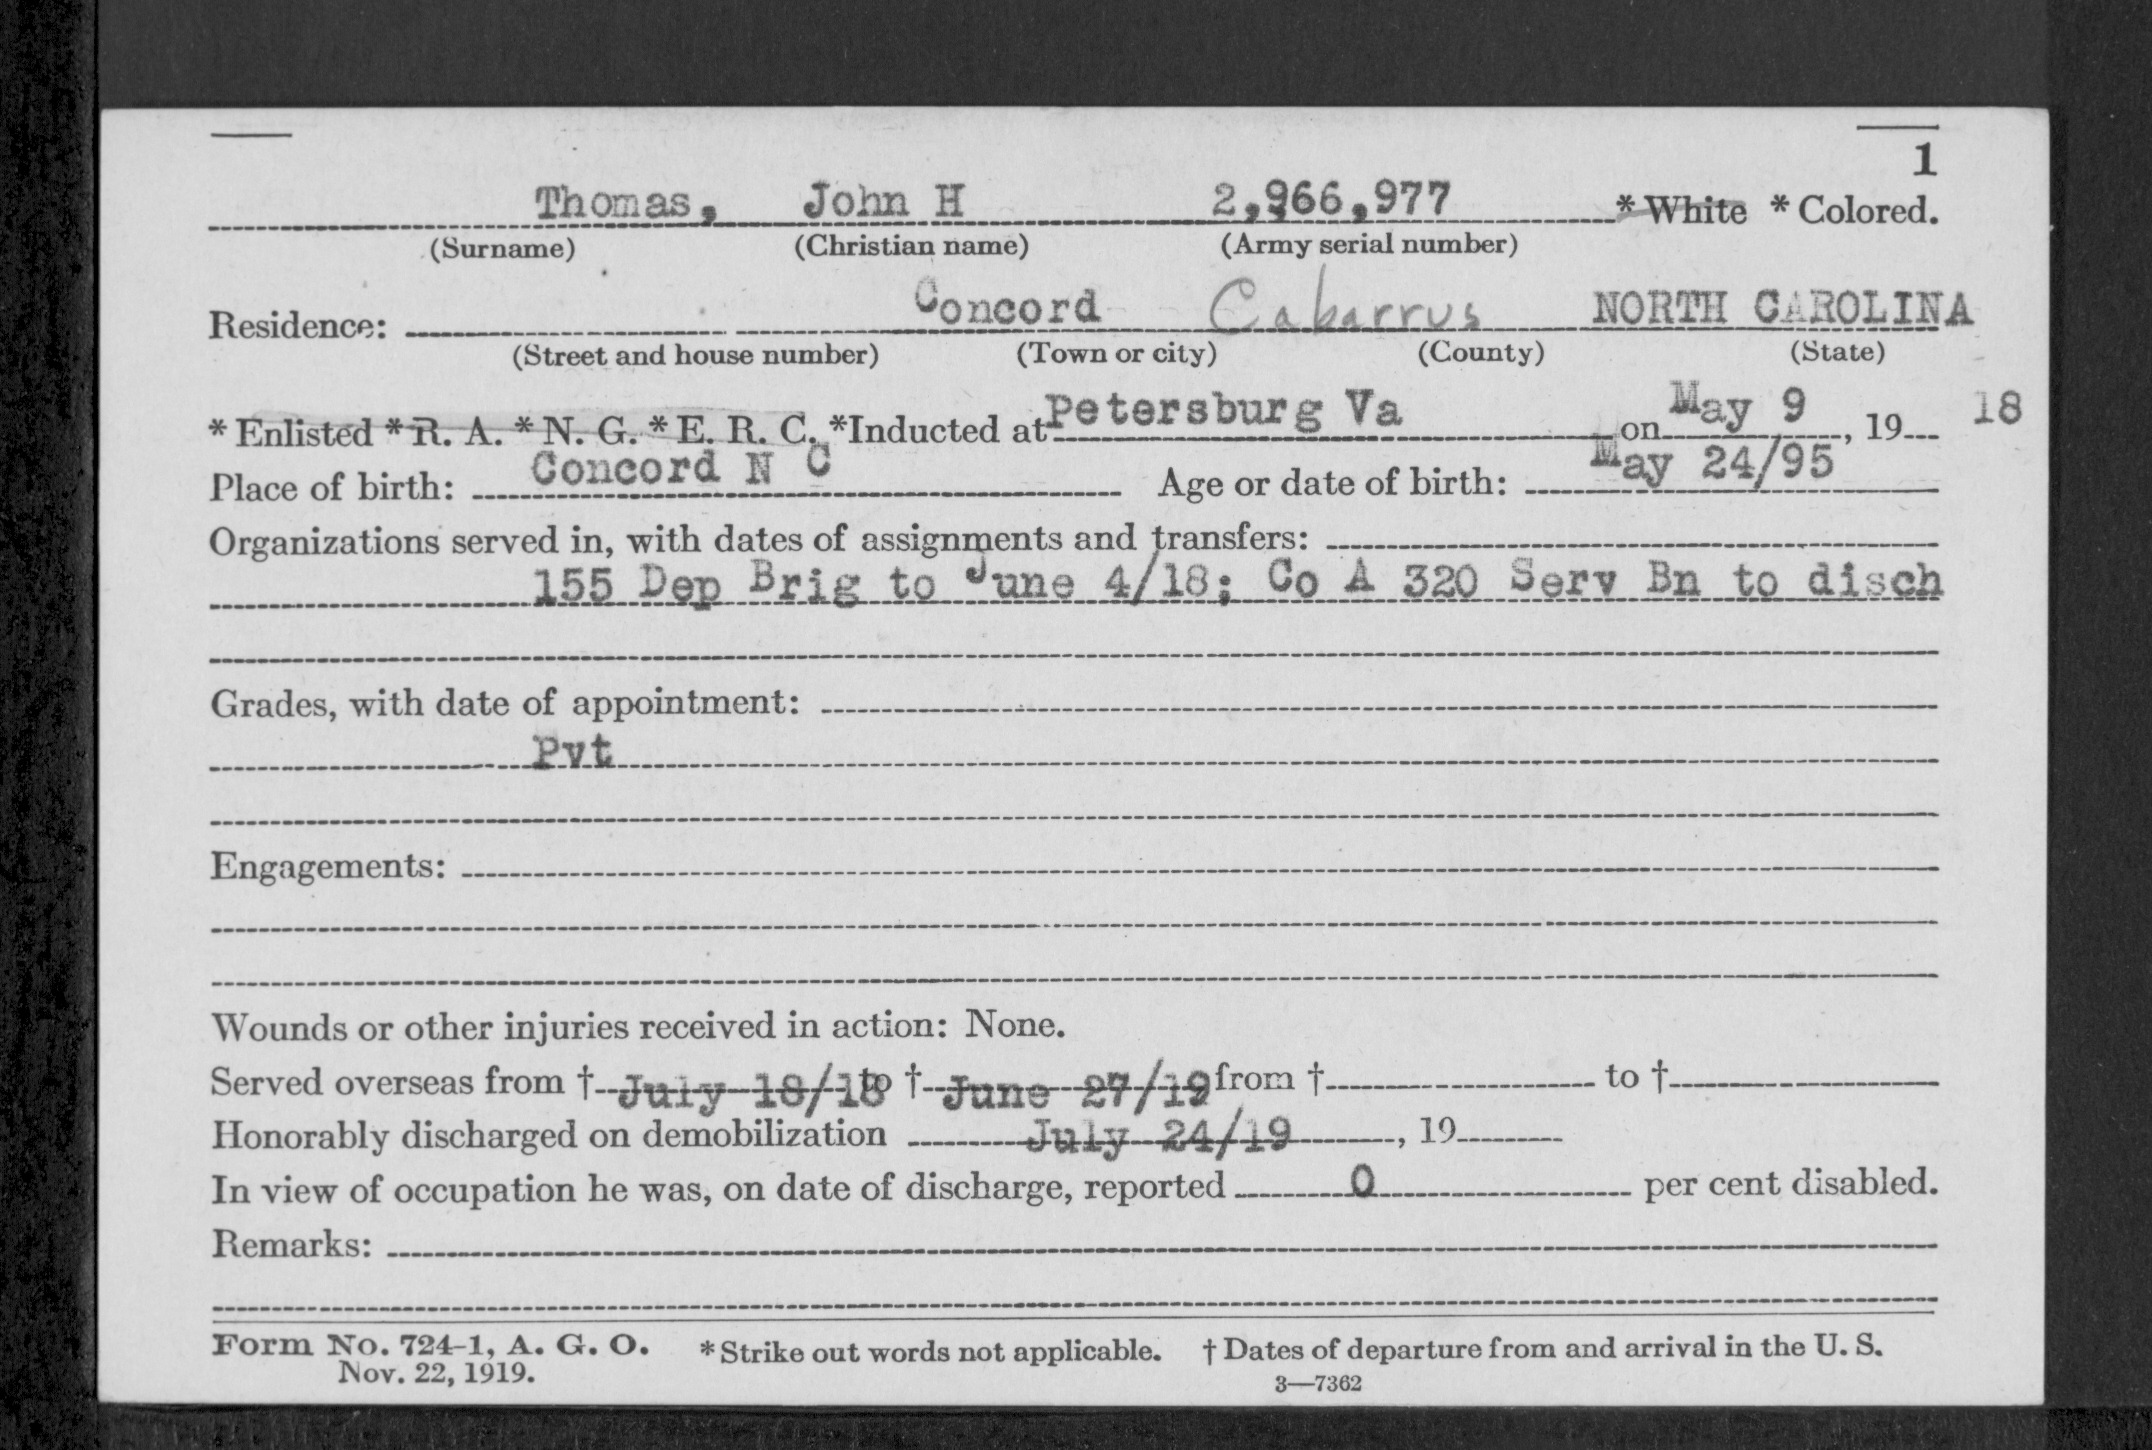 1
Thomas, John H 2,966,977 * White * Colored.
(Surname) (Christian name) (Army serial number)
Residence: Concord Cabarrus NORTH CAROLINA
(Street and house number) (Town or city) (County) (State)
* Enlisted * R. A. * N. G. * E. R. C. *Inducted at Petersburg Va on May 9, 19 18
Place of birth: Concord N C Age or date of birth: May 24/95
Organizations served in, with dates of assignments and transfers:
155 Dep Brig to June 4/18; Co A 320 Serv Bn to disch
Grades, with date of appointment:
Pvt
Engagements:
Wounds or other injuries received in action: None.
Served overseas from † July 18/18 to † June 27/19 from † to †
Honorably discharged on demobilization July 24/19, 19
In view of occupation he was, on date of discharge, reported 0 per cent disabled.
Remarks:
Form No. 724-1, A. G. O. * Strike out words not applicable. † Dates of departure from and arrival in the U. S.
Nov. 22, 1919. 3—7362